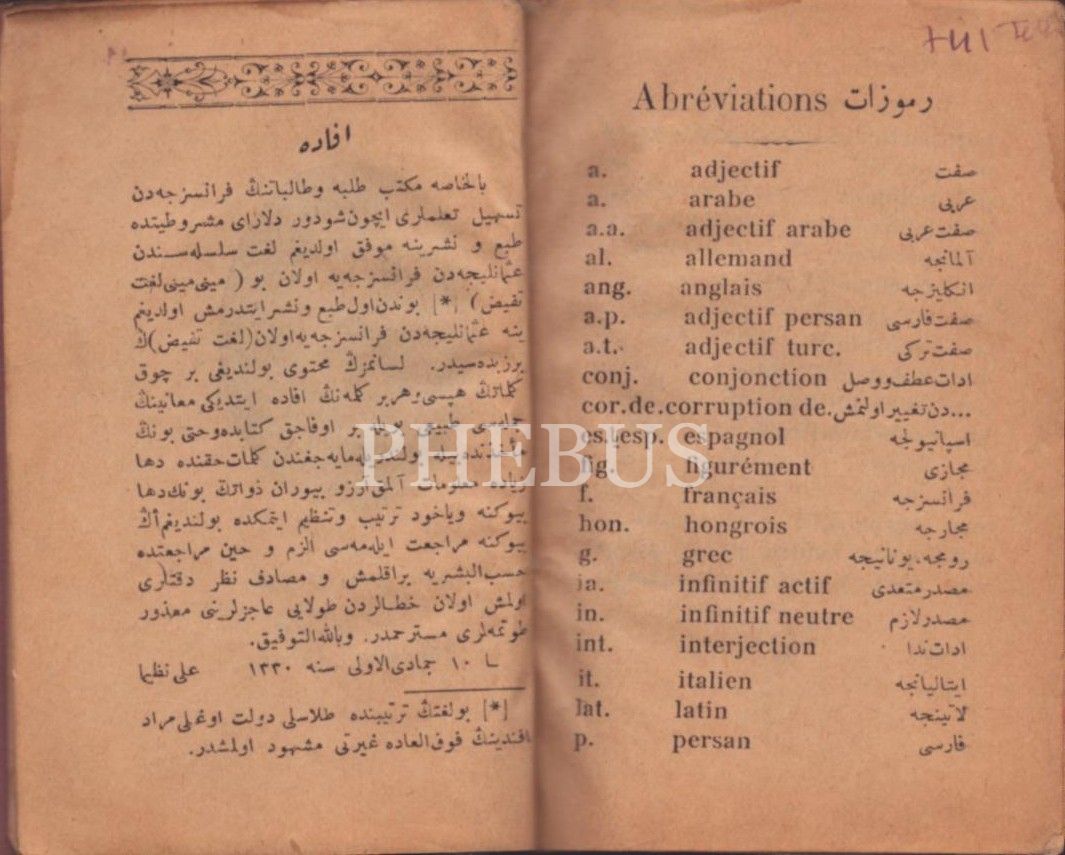 افاده
بالخاصه مكتب طلبه وطالباتنڭ فرانسزجه‌دن
تسهيل تعلملرى ايچون شو دور دلاراى مشروطيتده
طبع و نشرينه موفق اولديغم لغت سلسله‌سندن
عثمانليجه‌دن فرانسزجه‌يه اولان بو ( مينى مينى لغت
تفيض ) [*] بوندن اول طبع و نشر ايتدرمش اولديغم
ينه عثمانليجه‌دن فرانسزجه‌يه اولان (لغت تفيض)ڭ
بر زبده‌سيدر. لسانمزڭ محتوى بولنديغى بر چوق
كلماتڭ هپسى و هر بر كلمه‌نڭ افاده ايتديكى معانينڭ
جمله‌سى طبيعى بويله بر اوفاجق كتابده وحتى بونڭ
بولنديريله‌مايه‌جغندن كلمات حقنده دها
زياده معلومات آلمق آرزو بيوران ذواتڭ بونڭ دها
بيوكنه وياخود ترتيب وتنظيم ايتمكده بولنديغم اڭ
بيوكنه مراجعت ايله‌مه‌سى الزم و حين مراجعتده
حسب البشريه براقلمش و مصادف نظر دقتلرى
اولمش اولان خطالردن طولايى عاجزلرينى معذور
طوتمه‌لرى مسترحمدر. وبالله التوفيق.
١٠ جمادى الاولى سنه ١٣٣٠ على نظيما
[*] بو لغتڭ ترتيبنده طلاسلى دولت اوغلى مراد
افندينڭ فوق العاده غيرتى مشهود اولمشدر.
Abréviations رموزات
a. adjectif صفت
a. arabe عربى
a.a. adjectif arabe صفت عربى
al. allemand آلمانجه
ang. anglais انكليزجه
a.p. adjectif persan صفت فارسى
a.t. adjectif turc. صفت تركى
conj. conjonction ادات عطف و وصل
cor.de.corruption de. ...دن تغيير اولنمش
es.esp. espagnol اسپانيولجه
fig. figurément مجازى
f. français فرانسزجه
hon. hongrois مجارجه
g. grec رومجه، يونانيجه
ia. infinitif actif مصدر متعدى
in. infinitif neutre مصدر لازم
int. interjection ادات ندا
it. italien ايتاليانجه
lat. latin لاتينجه
p. persan فارسى
PHEBUS